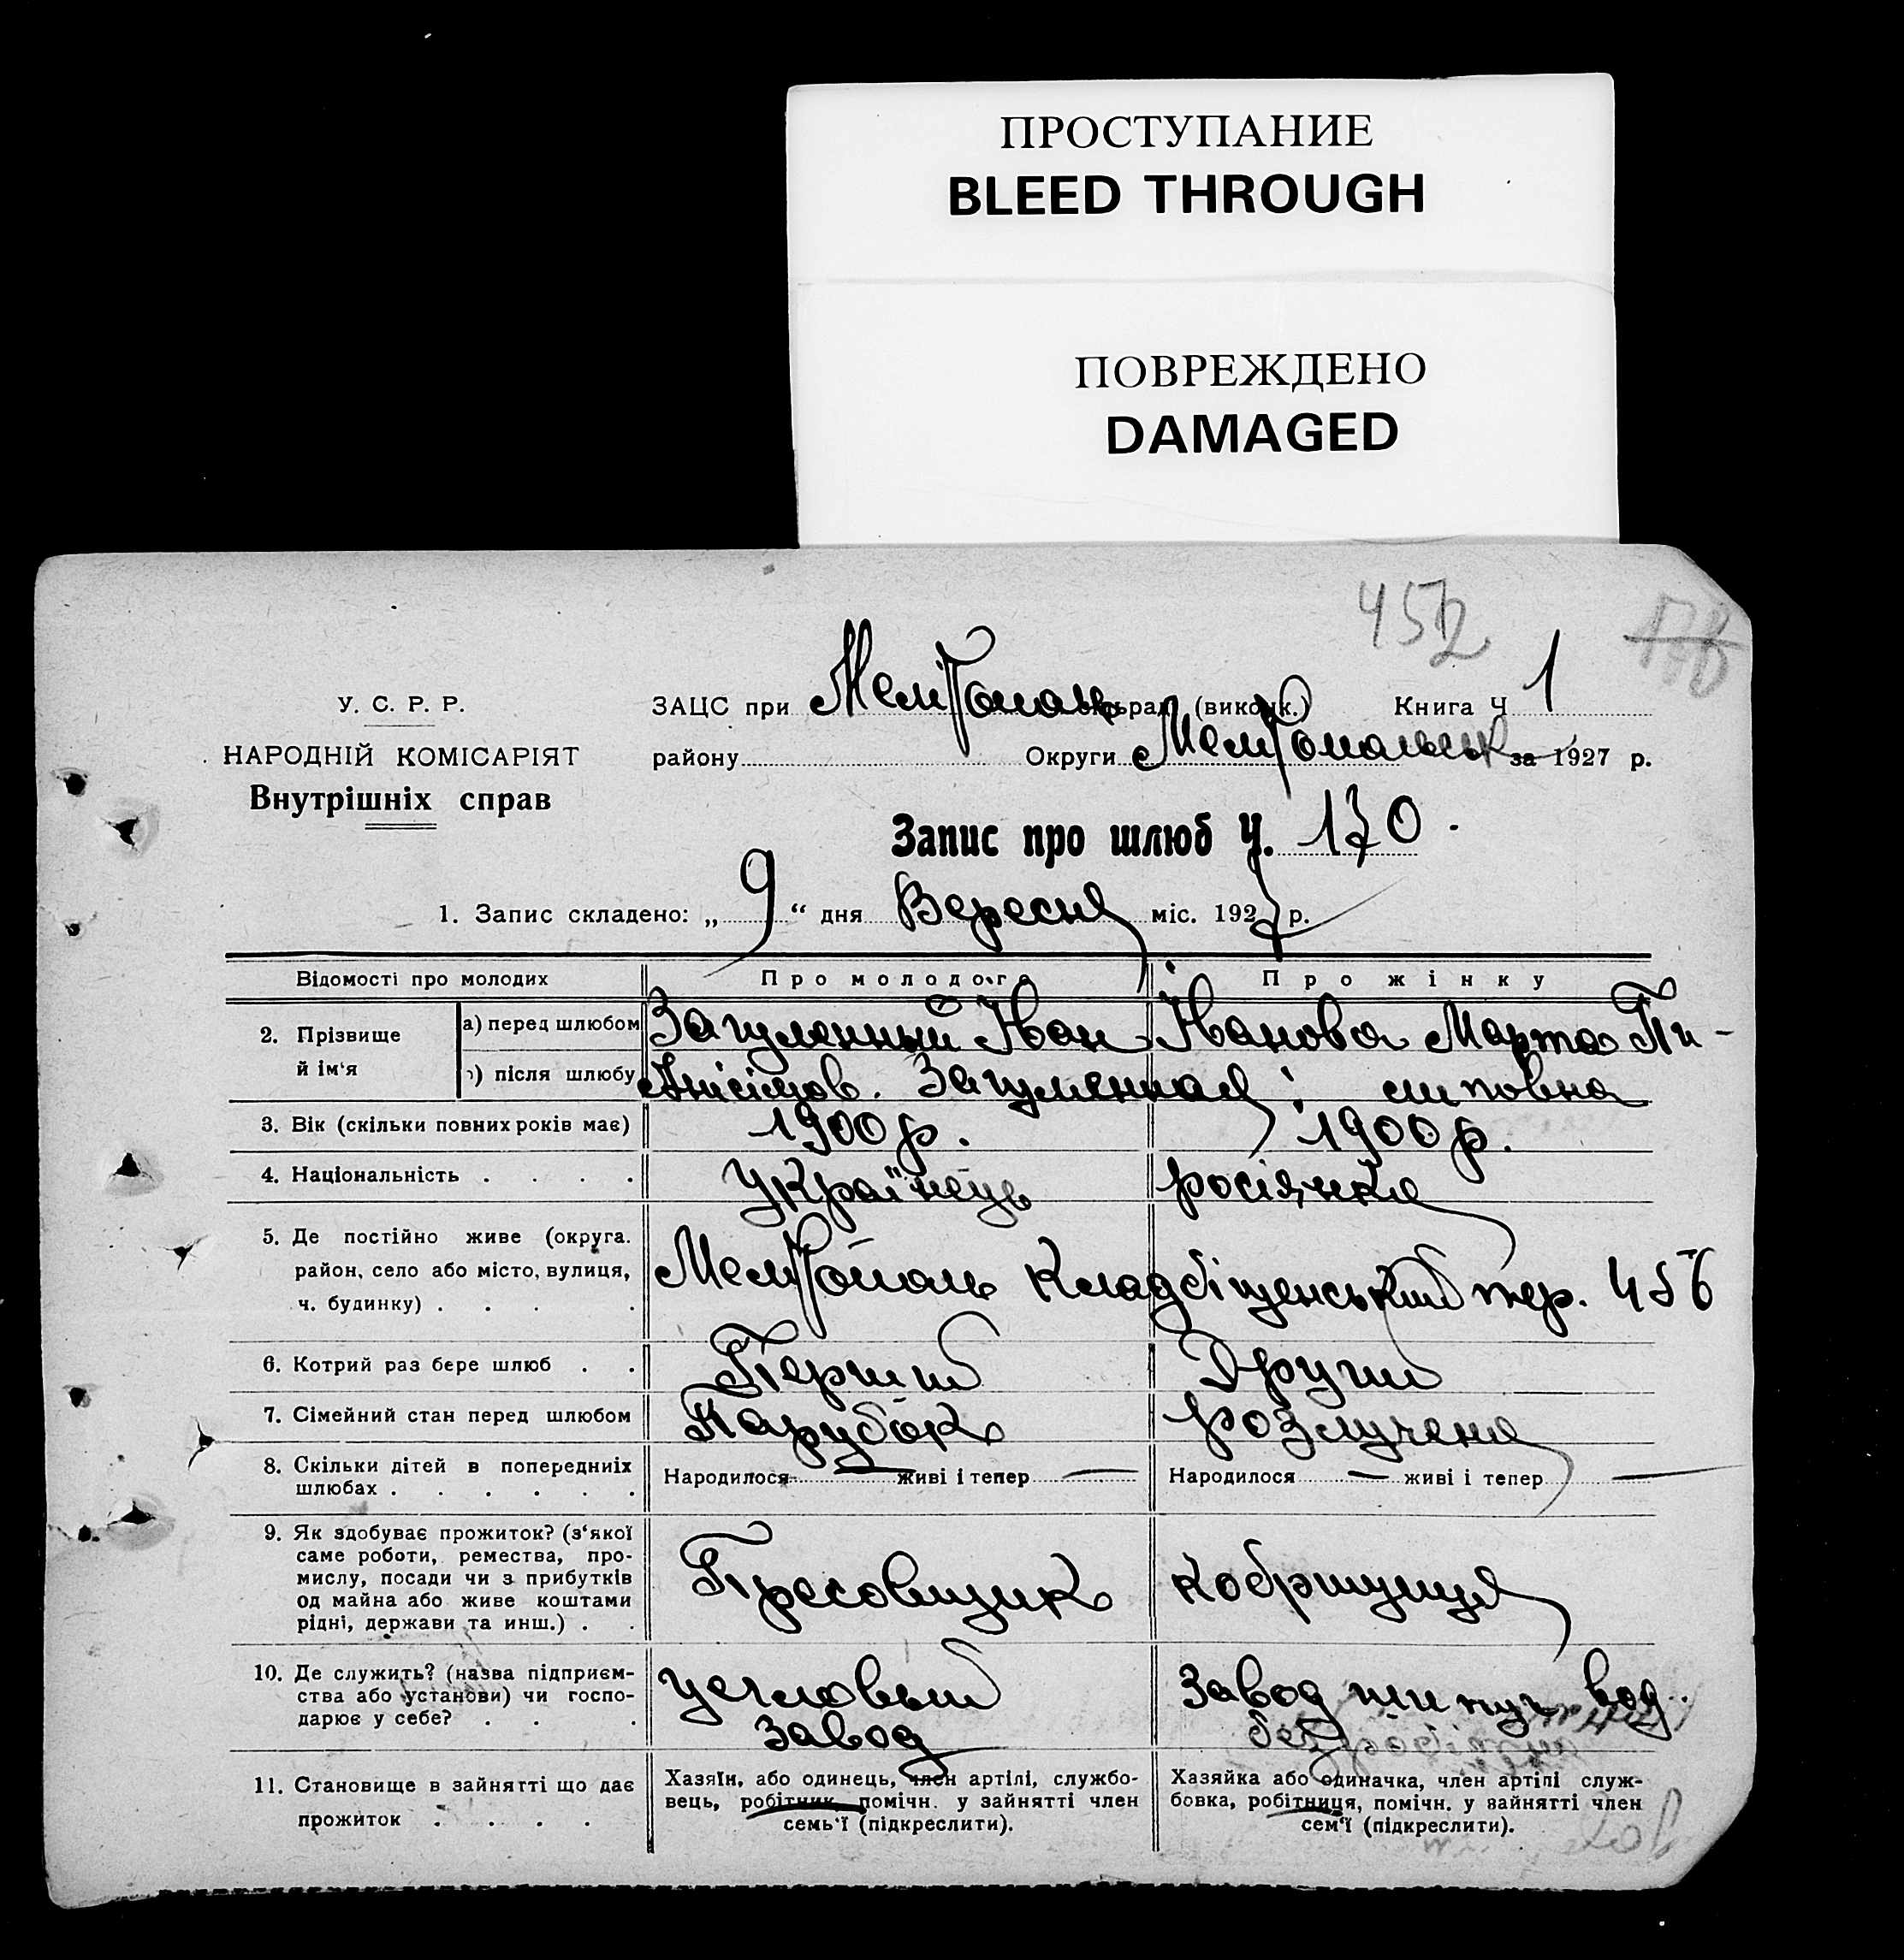 ПРОСТУПАНИЕ
BLEED THROUGH
ПОВРЕЖДЕНО
DAMAGED
452
У. С. Р. Р.
НАРОДНІЙ КОМІСАРІЯТ
Внутрішніх справ
ЗАЦС при Мелітопольськ (виконк.) Книга Ч 1
району Округи Мелітопольськ за 1927 р.
Запис про шлюб Ч. 170.
1. Запис складено: „ 9 “ дня Вересня міс. 1927 р.
Відомості про молодих Про молодого Про жінку
2. Прізвище й ім‘я а) перед шлюбом Загуменный Іван Іванова Марта Пи-
) після шлюбу Анісімов. Загуменная; липовна
3. Вік (скільки повних років має) 1900 р. 1900 р.
4. Національність . . . . Українець росіянка
5. Де постійно живе (округа.
район, село або місто, вулиця,
ч. будинку) . . . . Мелітополь Кладбіщенський пер. 45
6. Котрий раз бере шлюб . . Перший Другий
7. Сімейний стан перед шлюбом Парубок розлучена
8. Скільки дітей в попередниіх
шлюбах . . . . . . Народилося — живі і тепер — Народилося — живі і тепер —
9. Як здобуває прожиток? (з‘якої
саме роботи, ремества, про-
мислу, посади чи з прибутків
од майна або живе коштами
рідні, держави та инш.) . . Пресовщик
10. Де служить? (назва підприєм-
ства або установи) чи госпо-
дарює у себе? . . . завод Завод шипуч. вод.
11. Становище в зайнятті що дає
прожиток . . . .
Хазяїн, або одинець, член артілі, службо-
вець, робітник, помічн. у зайнятті член
семь‘ї (підкреслити).
Хазяйка або одиначка, член артілі служ-
бовка, робітниця, помічн. у зайнятті член
сем‘ї (підкреслити).